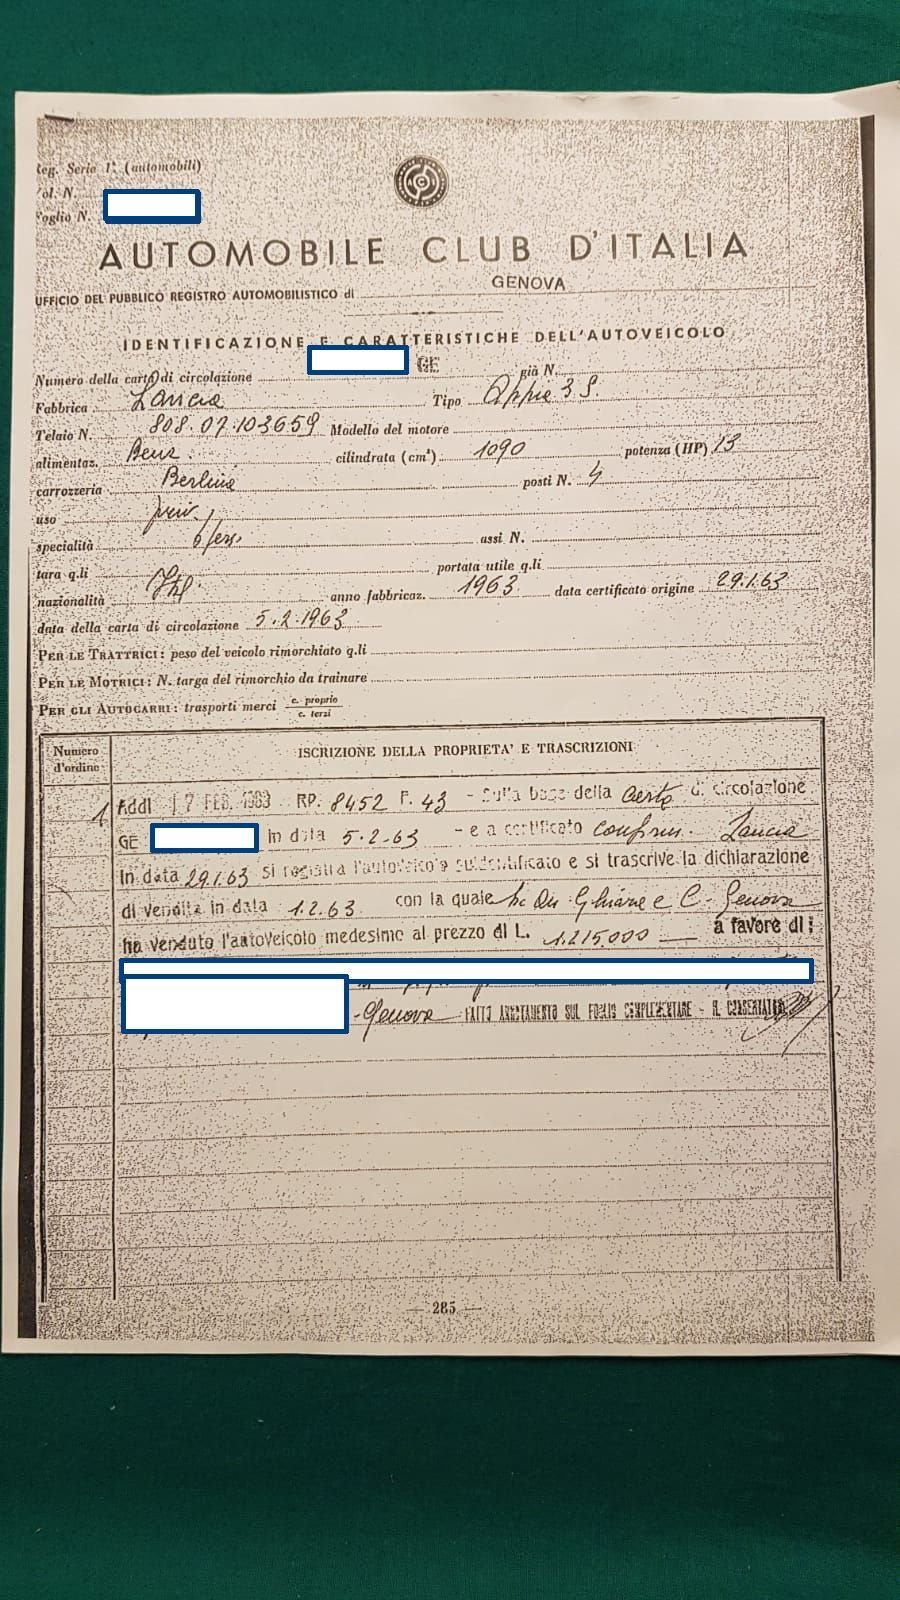 Reg. Serie 1ª (automobili)
Vol. N.
Foglio N.
AUTOMOBILE CLUB D'ITALIA
UFFICIO DEL PUBBLICO REGISTRO AUTOMOBILISTICO di GENOVA
IDENTIFICAZIONE E CARATTERISTICHE DELL'AUTOVEICOLO
Numero della carta di circolazione GE già N.
Fabbrica Lancia Tipo Appia 3 S.
Telaio N. 808.07.103659 Modello del motore
alimentaz. Benz. cilindrata (cm³) 1090 potenza (HP) 13
carrozzeria Berlina posti N. 4
uso priv.
specialità assi N.
tara q.li portata utile q.li
nazionalità anno fabbricaz. 1963 data certificato origine 29.1.63
data della carta di circolazione 5.2.1963
PER LE TRATTRICI: peso del veicolo rimorchiato q.li
PER LE MOTRICI: N. targa del rimorchio da trainare
PER GLI AUTOCARRI: trasporti merci c. proprio
c. terzi
Numero d'ordine
ISCRIZIONE DELLA PROPRIETA' E TRASCRIZIONI
1 Addì 17 FEB. 1963 RP. 8452 F. 43 - Sulla base della carta di circolazione
GE in data 5-2-63 - e a certificato Lancia
in data 29.1.63 si registra l'autoveicolo suidentificato e si trascrive la dichiarazione
di vendita in data 1.2.63 con la quale Ghiare e C - Genova
ha venduto l'autoveicolo medesimo al prezzo di L. 1.215.000 a favore di:
- Genova FATTO ANNOTAMENTO SUL FOGLIO COMPLEMENTARE - IL CONSERVATORE
— 285 —